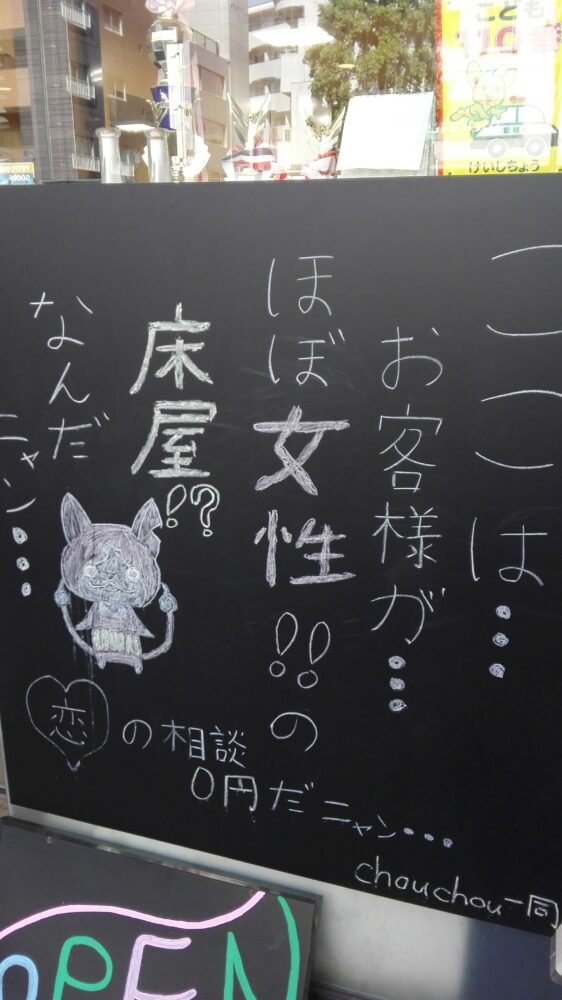 こども
110番
警視庁
けいしちょう
ここは・・・
お客様が・・・
ほぼ女性!!の
床屋!?
なんだ
ニャン・・・
恋の相談
0円だニャン・・・
chouchou一同
OPEN